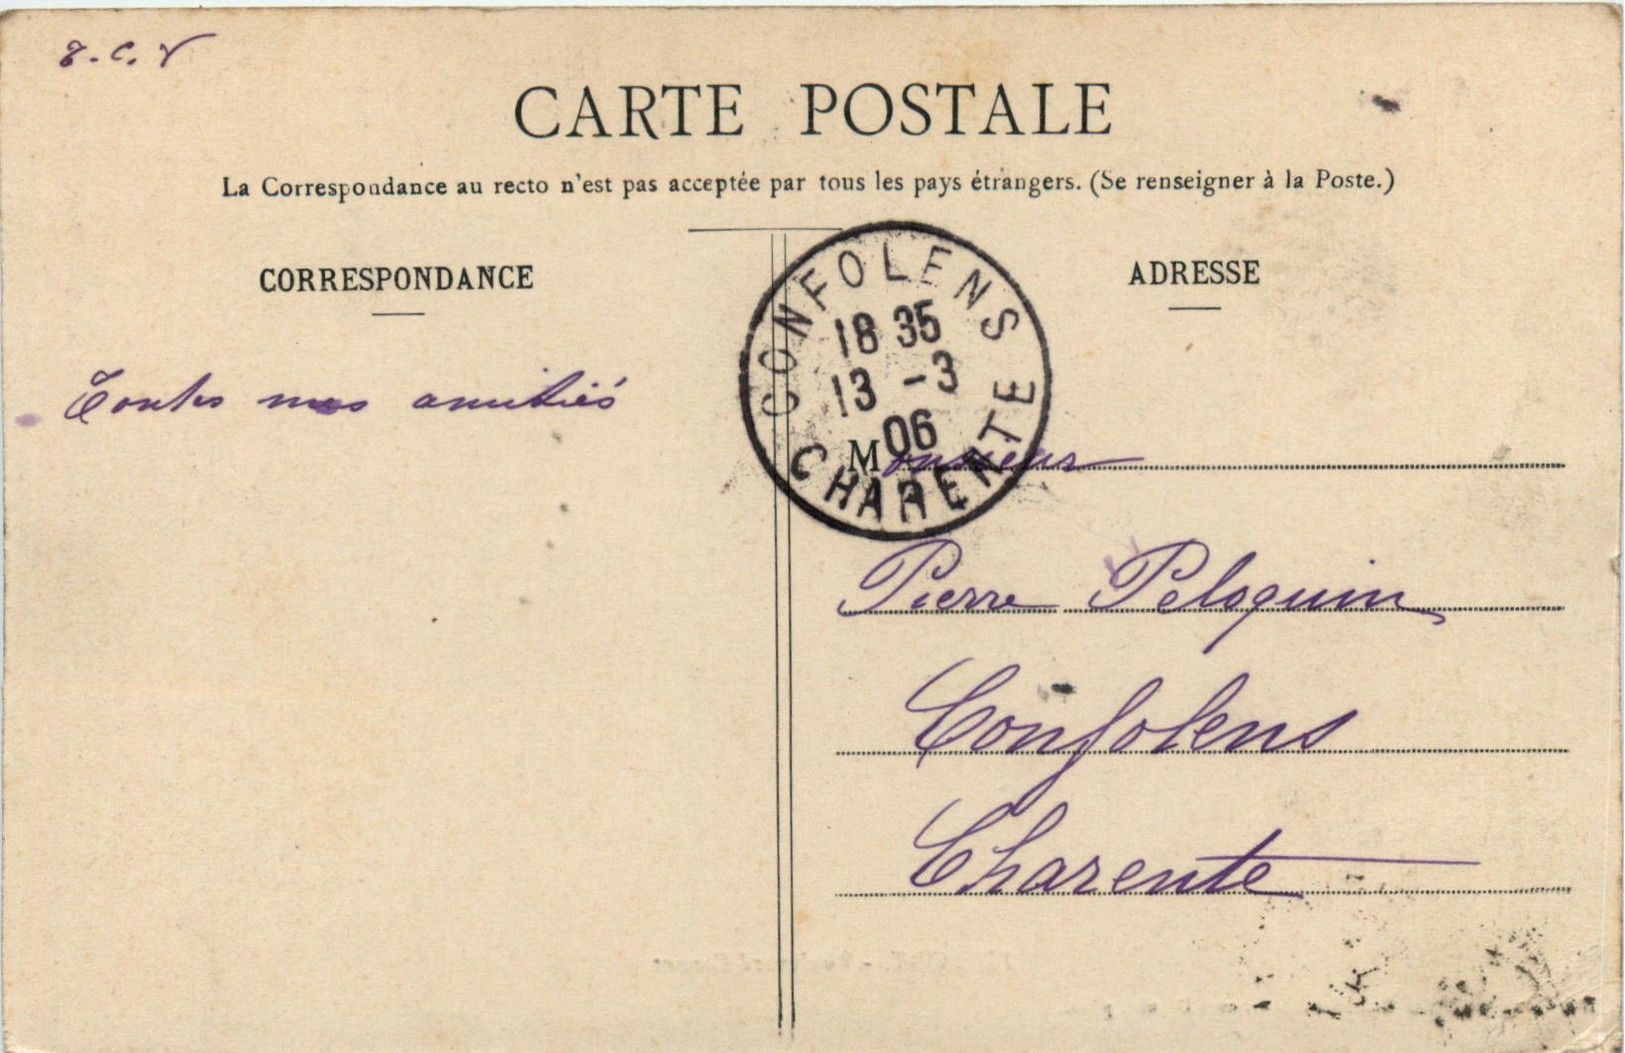 T.C.V
CARTE POSTALE
La Correspondance au recto n'est pas acceptée par tous les pays étrangers. (Se renseigner à la Poste.)
CORRESPONDANCE
Toutes mes amitiés
ADRESSE
CONFOLENS
18 35
13 -3
06
CHARENTE
Monsieur
Pierre Peloquin
Confolens
Charente